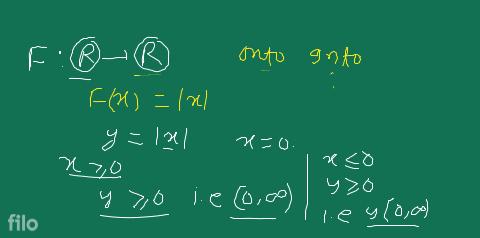 F : R → R onto into
F(x) = |x|
y = |x| x = 0.
x ≥ 0
y ≥ 0 i.e [0,∞)
x ≤ 0
y ≥ 0
i.e y [0,∞)
filo